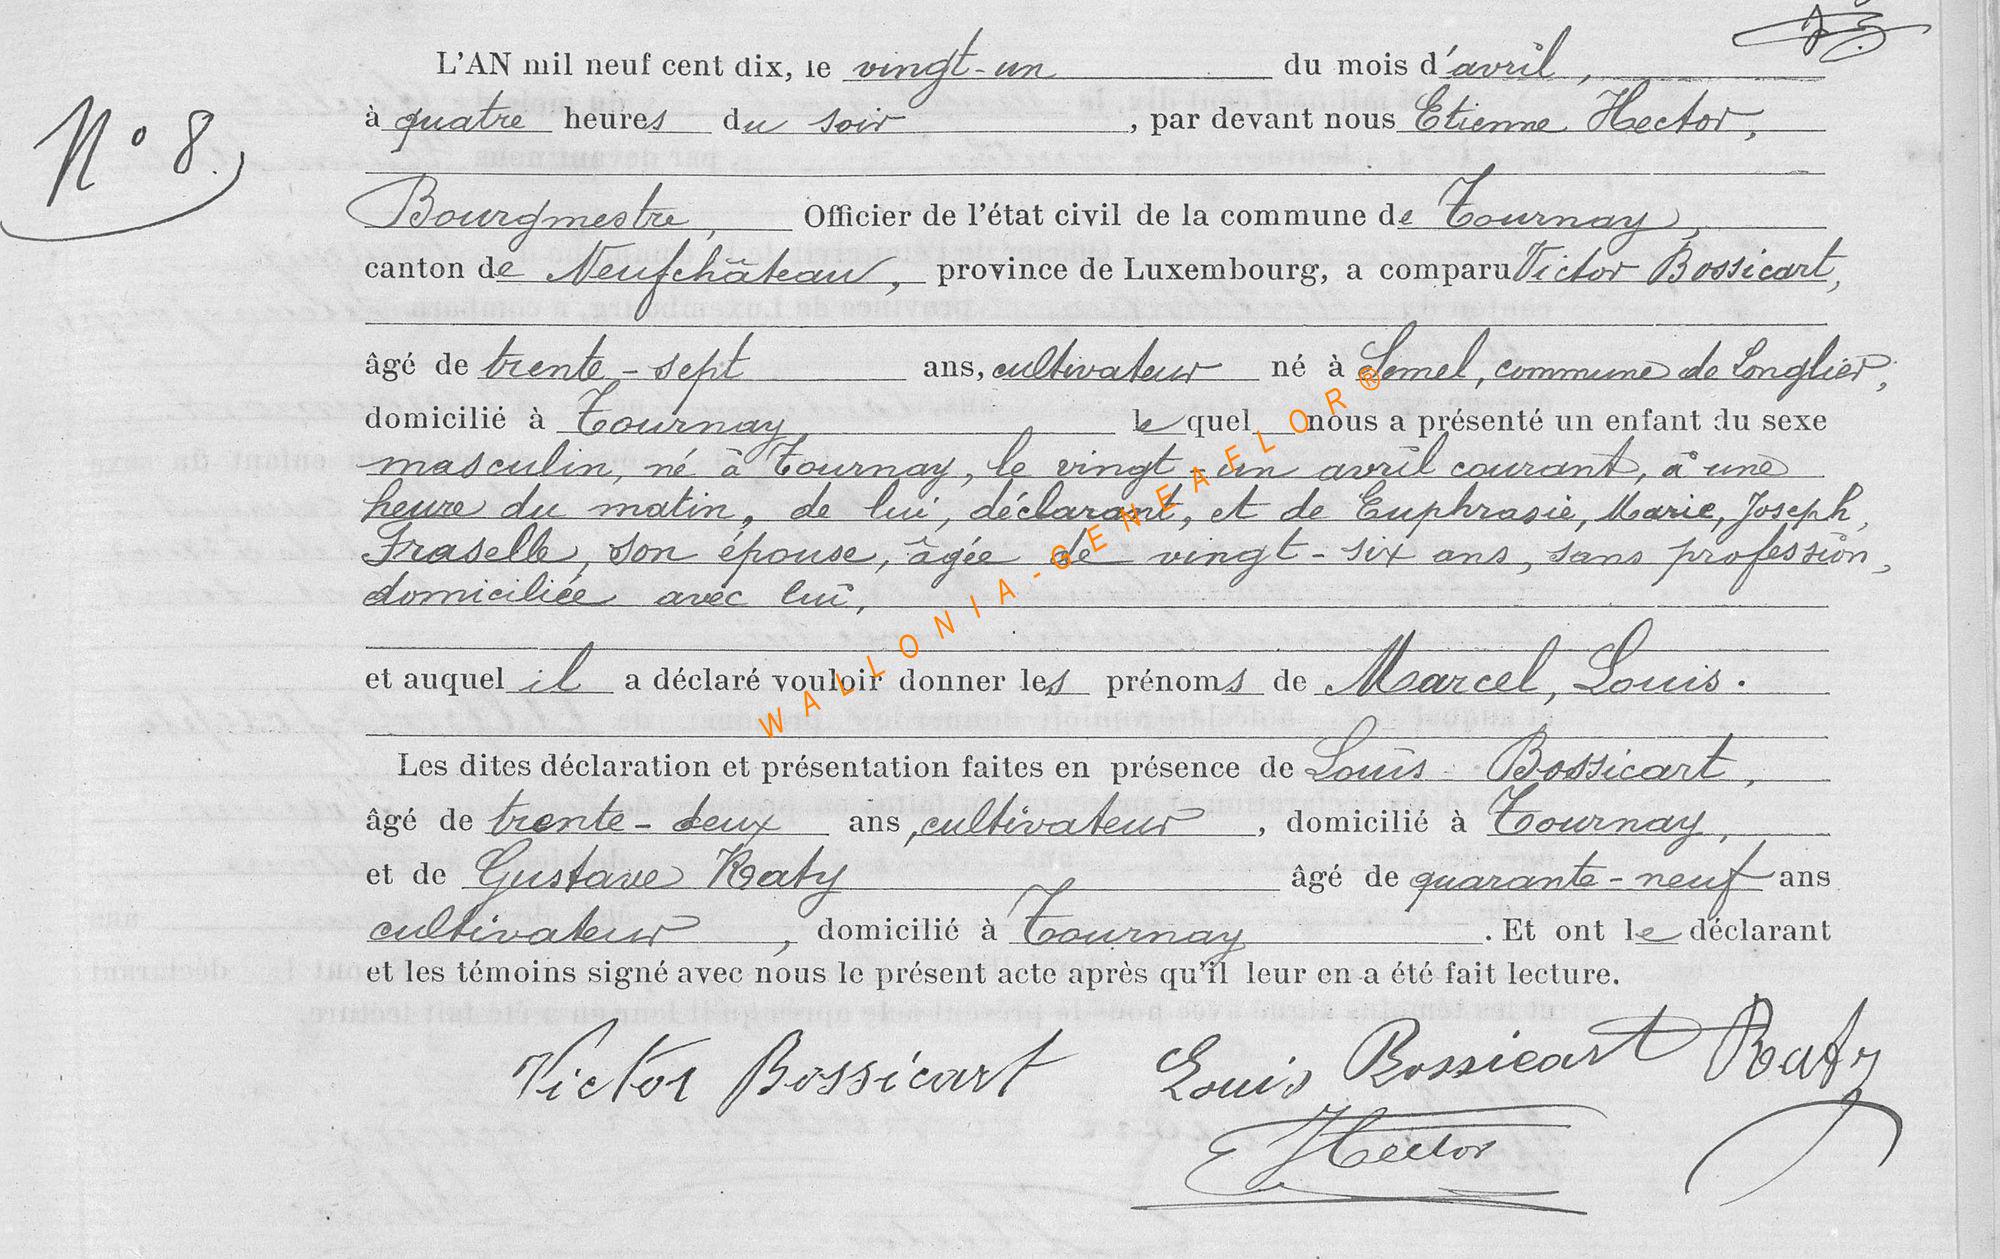 L'AN mil neuf cent dix, le vingt-un du mois d'avril,
à quatre heures du soir, par devant nous Etienne Hector,
N° 8.
Bourgmestre, Officier de l'état civil de la commune de Tournay,
canton de Neufchâteau, province de Luxembourg, a comparu Victor Bossicart,
âgé de trente-sept ans, cultivateur né à Semel, commune de Longlier,
domicilié à Tournay le quel nous a présenté un enfant du sexe
masculin, né à Tournay, le vingt-un avril courant, à une
heure du matin, de lui, déclarant, et de Euphrasie, Marie, Joseph,
Fraselle, son épouse, âgée de vingt-six ans, sans profession,
domiciliée avec lui,
et auquel il a déclaré vouloir donner les prénoms de Marcel, Louis.
Les dites déclaration et présentation faites en présence de Louis Bossicart,
âgé de trente-deux ans, cultivateur, domicilié à Tournay,
et de Gustave Raty âgé de quarante-neuf ans
cultivateur, domicilié à Tournay. Et ont le déclarant
et les témoins signé avec nous le présent acte après qu'il leur en a été fait lecture.
Victor Bossicart Louis Bossicart Raty
E Hector
WALLONIA-GENEAELOR®